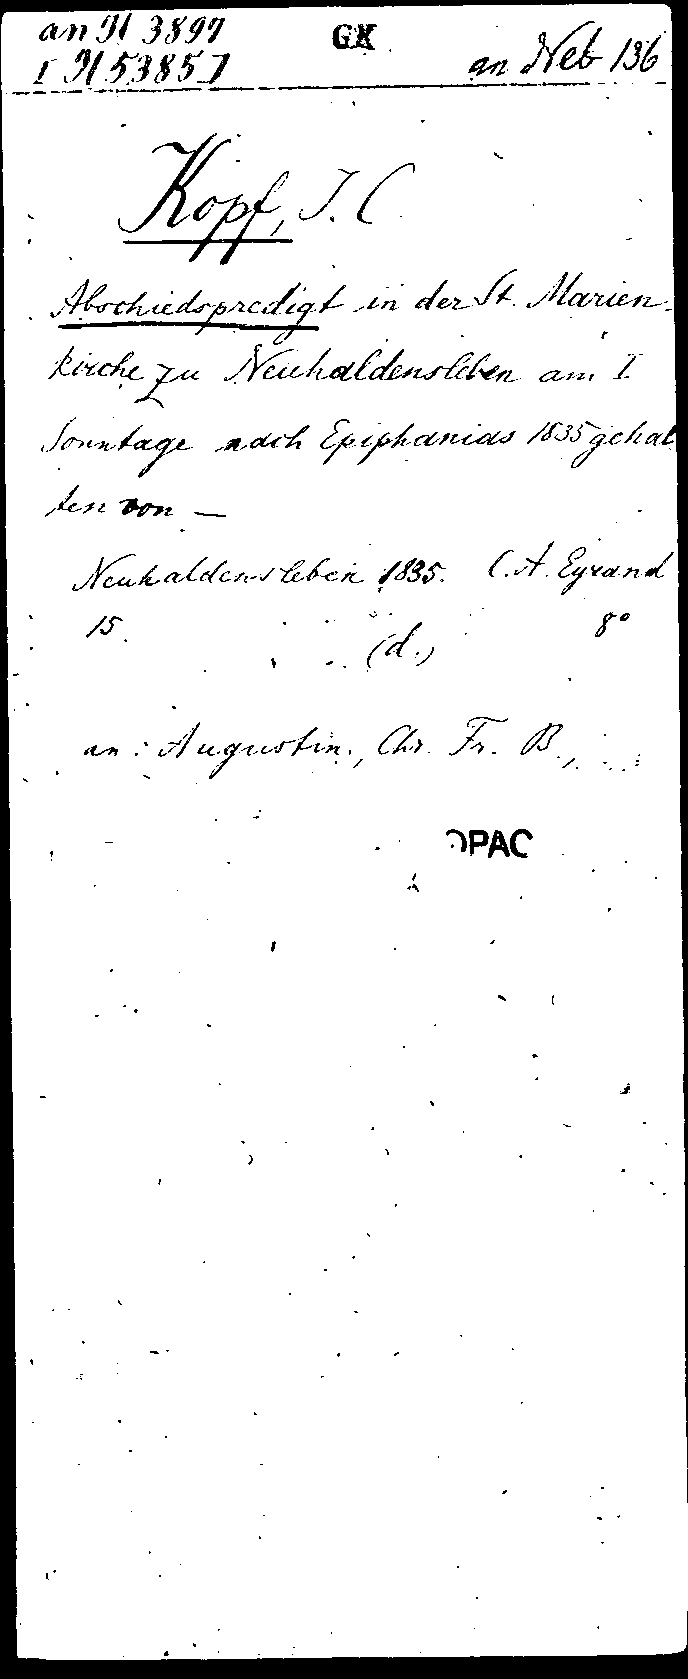 an N 3897
I N 5385 7
GK
an Neb 136
Kopf, J. C.
Abschiedspredigt in der St. Marien-
kirche zu Neuhaldensleben am I
Sonntage nach Epiphanias 1835 gehal
ten von —
Neuhaldensleben 1835. C. A. Eyrand
15. 8°
(d.)
an: Augustin, Chr. Fr. B.,
OPAC